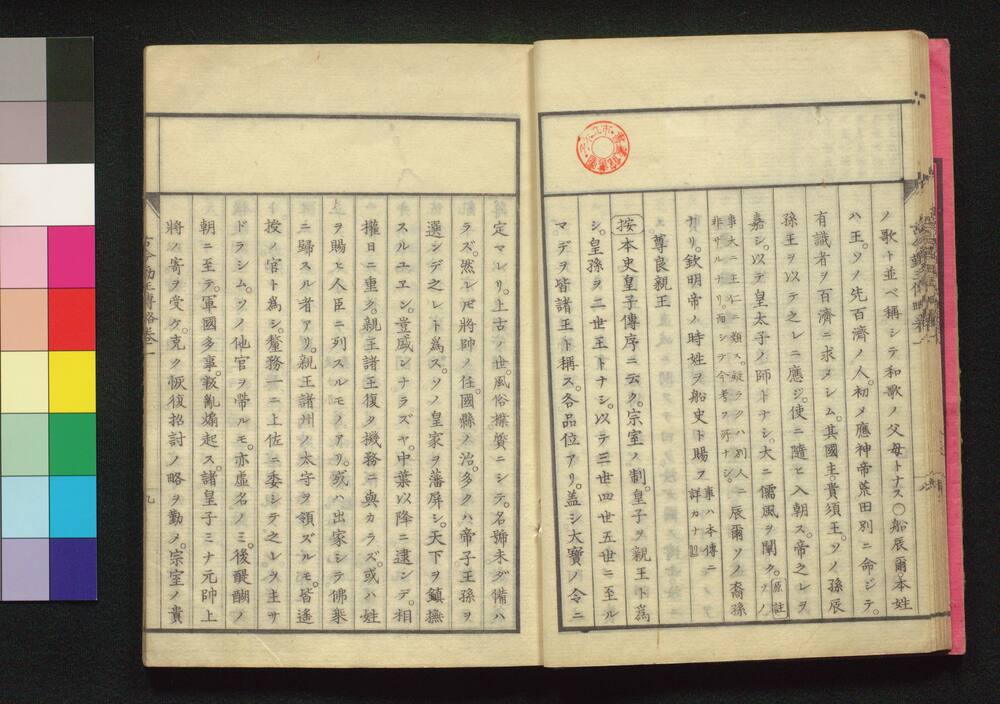 ノ歌ト並ベ稱シテ和歌ノ父母トナス○船辰爾本姓
ハ王。ソノ先百濟ノ人。初メ應神帝荒田別ニ命ジテ。
有識者ヲ百濟ニ求メシム。其國主。貴須王。ソノ孫辰
孫王ヲ以テ之レニ應ジ。使ニ隨ヒ入朝ス。帝之レヲ
嘉シ。以テ皇太子ノ師トナシ。大ニ儒風ヲ闡ク。ソノ
原註
事太ニ王仁ニ類ス。疑ラクハ別人ニ
非ザルナリ。而シテ今考フ所ナシ。
辰爾ソノ裔孫
ナリ。欽明帝ノ時姓ヲ船史ト賜フ
事ハ本傳ニ
詳カナリ
尊良親王
按本史皇子傳序ニ云ク。宗室ノ制。皇子ヲ親王ト爲
シ。皇孫ヲ二世王トナシ。以テ三世四世五世ニ至ル
マデヲ皆諸王ト稱ス。各品位アリ。蓋シ大寶ノ令ニ
定マレリ。上古ノ世。風俗樸質ニシテ。名號未ダ備ハ
ラズ。然レ𪜈將帥ノ任。國縣ノ治。多クハ帝子王孫ヲ
選ンデ之レト爲ス。ソノ皇家ヲ藩屏シ。天下ヲ鎮撫
スルユエン。豈盛シナラズヤ。中葉以降ニ逮ンデ。相
權日ニ重ク。親王諸王復タ機務ニ與カラズ。或ハ姓
ヲ賜ヒ人臣ニ列スルモノアリ。或ハ出家シテ佛乘
ニ歸スル者アリ。親王諸州ノ太守ヲ領ズルモ。皆遙
授ノ官ト爲シ。釐務一ニ上佐ニ委シテ之レヲ主サ
ドラシム。ソノ他官ヲ帶ルモ。亦虛名ノミ。後醍醐ノ
朝ニ至テ。軍國多事。叛亂煽起ス。諸皇子ミナ元帥上
將ノ寄ヲ受ク。克ク恢復招討ノ略ヲ勤メ。宗室ノ貴
古今勤王傳略卷一
九